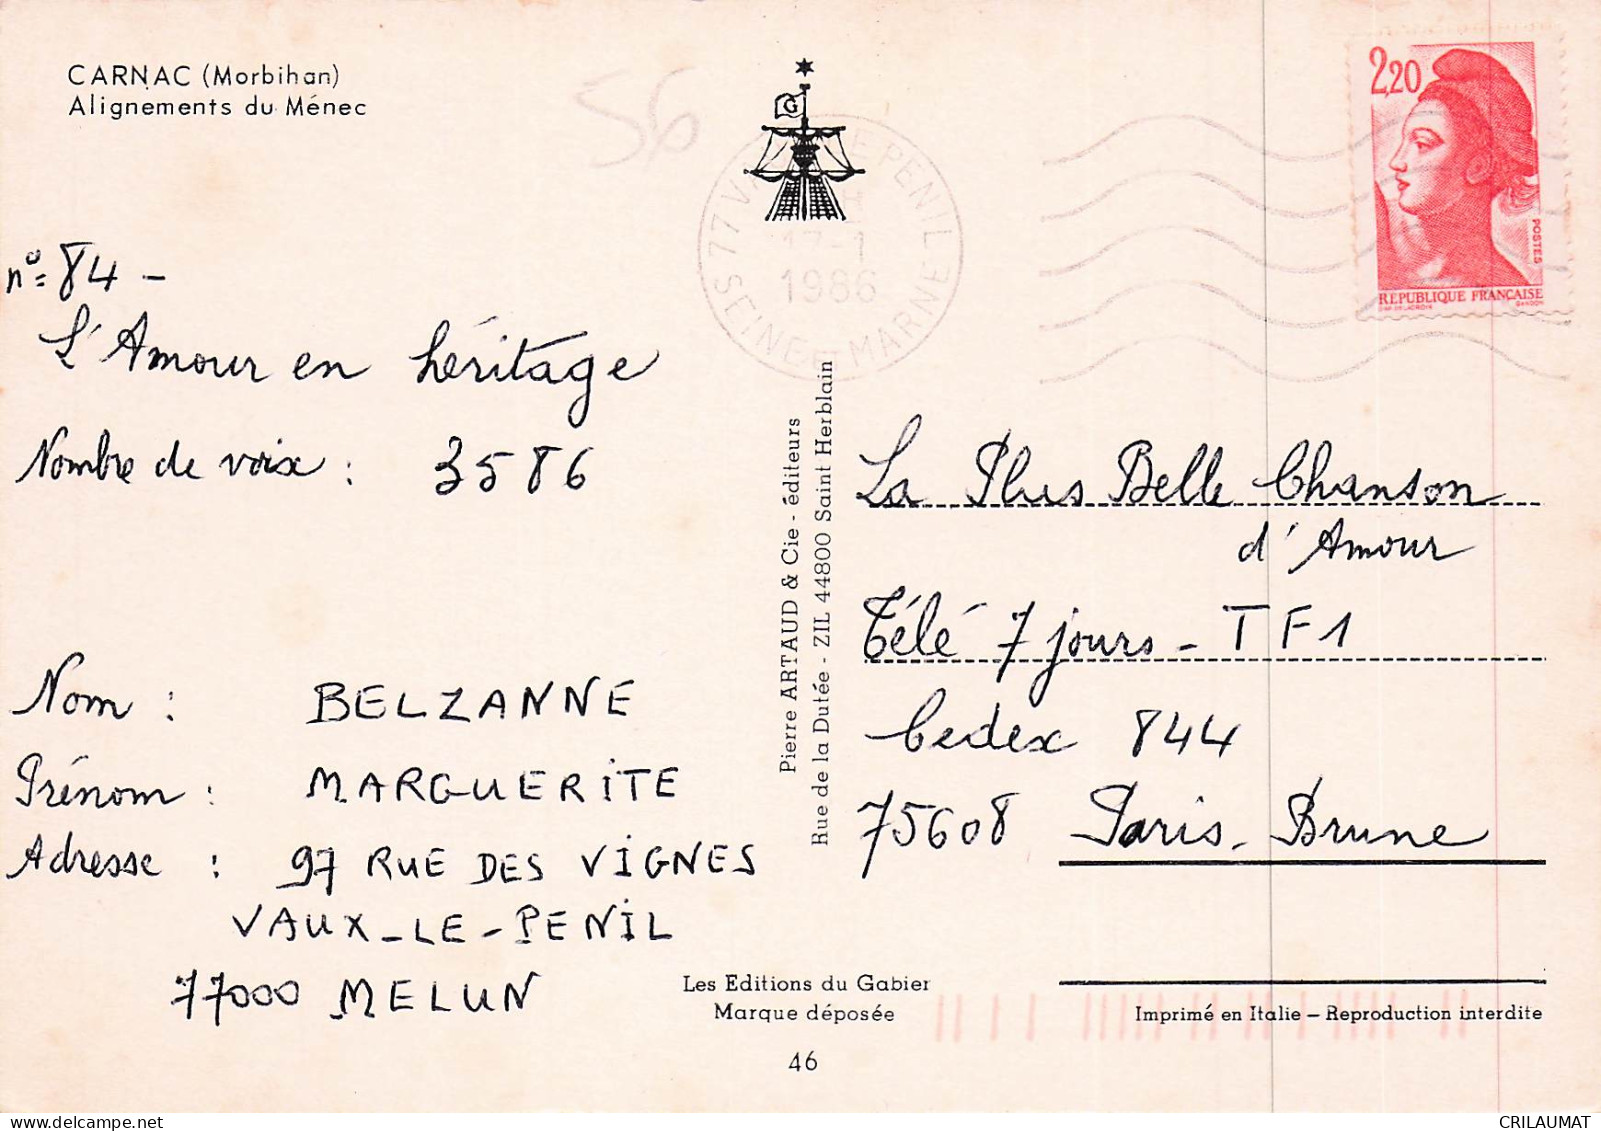 CARNAC (Morbihan)
Alignements du Ménec
56
G
2,20
POSTES
REPUBLIQUE FRANÇAISE
GANDON
77 VAUX LE PENIL
17-1
1986
SEINE ET MARNE
n° 84 -
L'Amour en héritage
Nombre de voix : 3586
Nom : BELZANNE
Prénom : MARGUERITE
Adresse : 97 RUE DES VIGNES
VAUX-LE-PENIL
77000 MELUN
Pierre ARTAUD & Cie - éditeurs
Rue de la Dutée - ZIL 44800 Saint Herblain
La Plus Belle Chanson
d'Amour
Télé 7 jours - TF1
Cedex 844
75608 Paris-Brune
Les Editions du Gabier
Marque déposée
46
Imprimé en Italie – Reproduction interdite
CRILAUMAT